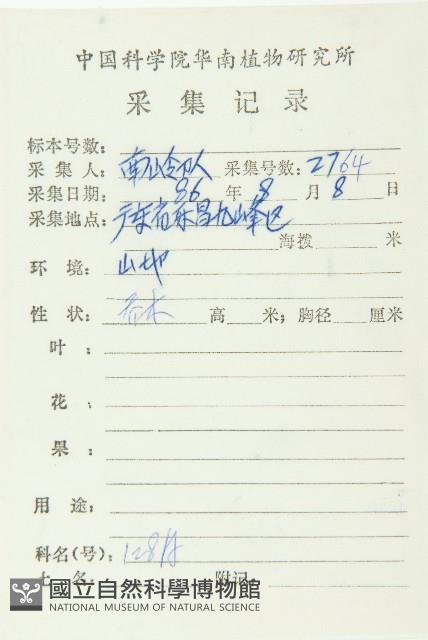 中国科学院华南植物研究所
采集记录
标本号数:
采集人: 采集号数: 2764
采集日期: 86 年 8 月 8 日
采集地点: 广东省乐昌九峰区
海拨 米
环境: 山地
性状: 乔木 高 米; 胸径 厘米
叶:
花:
果:
用途:
科名(号): 128A
土名 附记
國立自然科學博物館
NATIONAL MUSEUM OF NATURAL SCIENCE